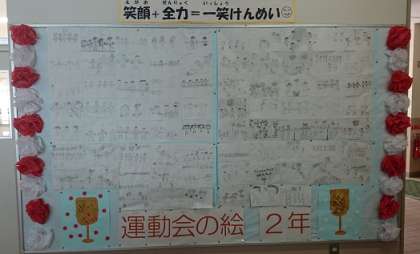 えがお ぜんりょく いっしょう
笑顔+全力=一笑けんめい☺
運動会の絵 2年